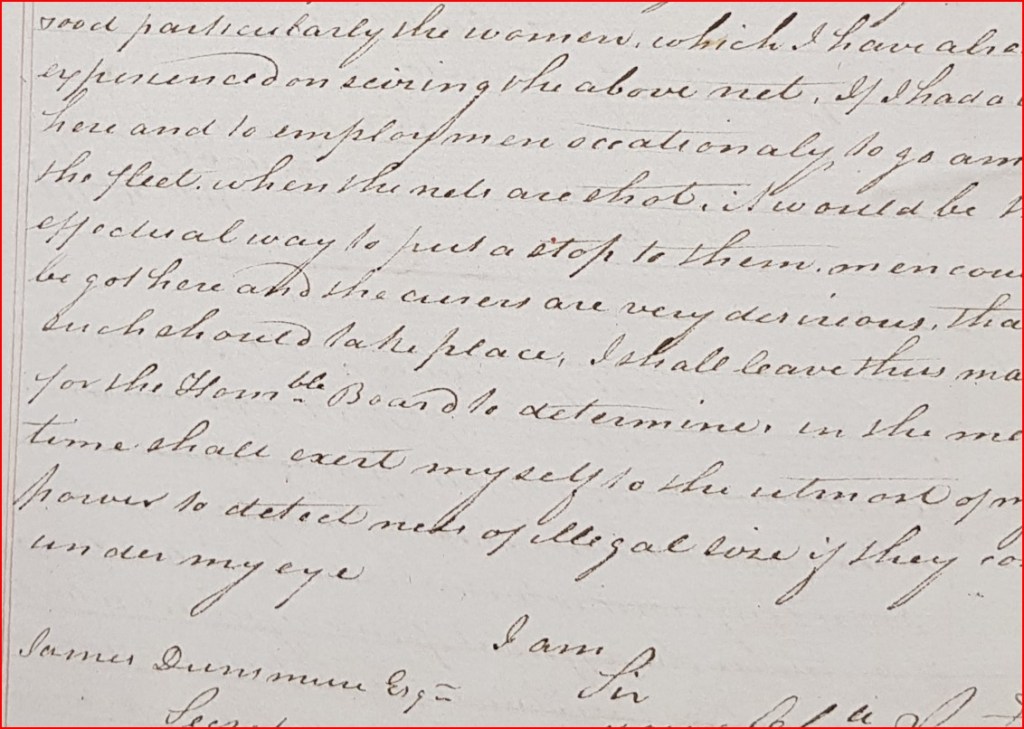 particularly the women, which I have also
experienced on seizing the above net, If I had a
here and to employ men occationaly to go am
the fleet, when the nets are shot, it would be
effectual way to put a stop to them, men cou
be got here and the curers are very desireous, tha
such should take place, I shall leave thus ma
for the Hom.ble Board to determine, in the me
time shall exert myself to the utmost of m
power to detect nets of illegal size if they co
under my eye
I am
Sir
James Dunsmure Esqr